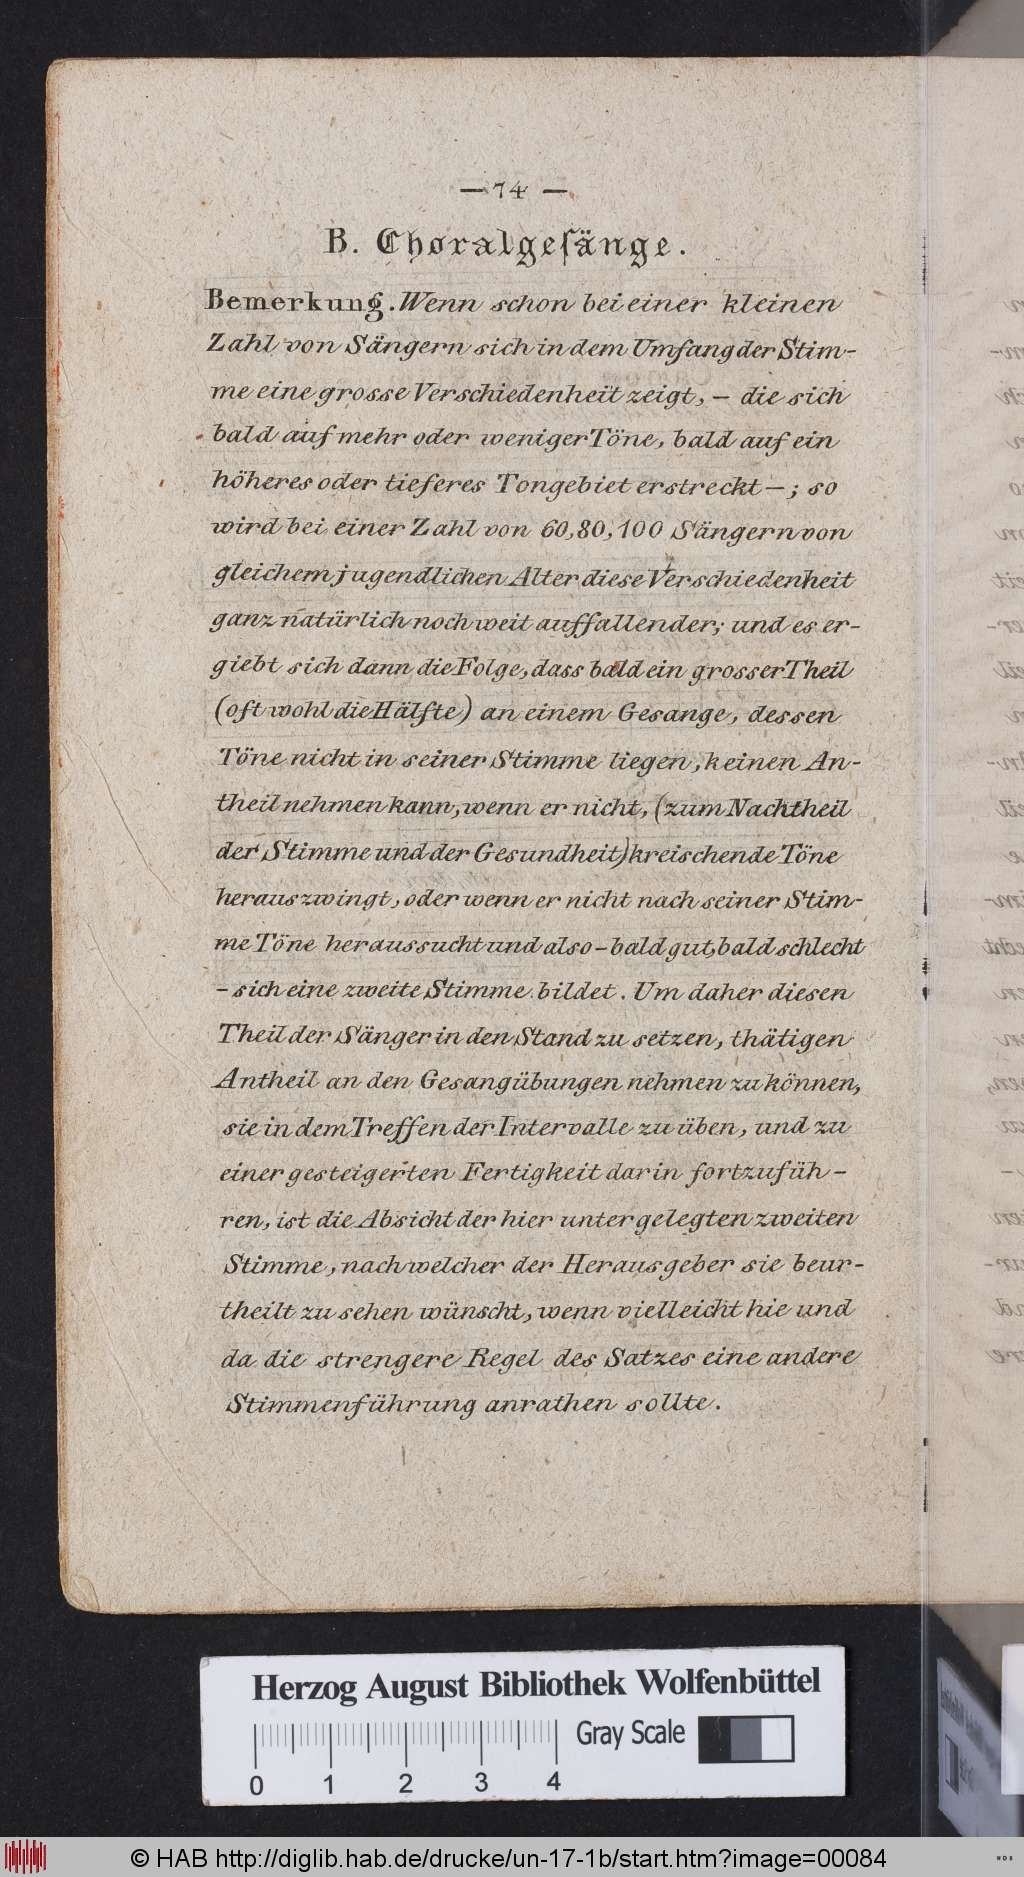 — 74 —
B. Choralgeſänge.
Bemerkung. Wenn schon bei einer kleinen
Zahl von Sängern sich in dem Umfang der Stim-
me eine grosse Verschiedenheit zeigt, – die sich
bald auf mehr oder weniger Töne, bald auf ein
höheres oder tieferes Tongebiet erstreckt –; so
wird bei einer Zahl von 60, 80, 100 Sängern von
gleichem jugendlichen Alter diese Verschiedenheit
ganz natürlich noch weit auffallender; und es er-
giebt sich dann die Folge, dass bald ein grosser Theil
(oft wohl die Hälfte) an einem Gesange, dessen
Töne nicht in seiner Stimme liegen, keinen An-
theil nehmen kann, wenn er nicht, (zum Nachtheil
der Stimme und der Gesundheit) kreischende Töne
herauszwingt, oder wenn er nicht nach seiner Stim-
me Töne heraussucht und also – bald gut, bald schlecht
– sich eine zweite Stimme bildet. Um daher diesen
Theil der Sänger in den Stand zu setzen, thätigen
Antheil an den Gesangübungen nehmen zu können,
sie in dem Treffen der Intervalle zu üben, und zu
einer gesteigerten Fertigkeit darin fortzufüh-
ren, ist die Absicht der hier untergelegten zweiten
Stimme, nach welcher der Herausgeber sie beur-
theilt zu sehen wünscht, wenn vielleicht hie und
da die strengere Regel des Satzes eine andere
Stimmenführung anrathen sollte.
Herzog August Bibliothek Wolfenbüttel
Gray Scale
0 1 2 3 4
© HAB http://diglib.hab.de/drucke/un-17-1b/start.htm?image=00084